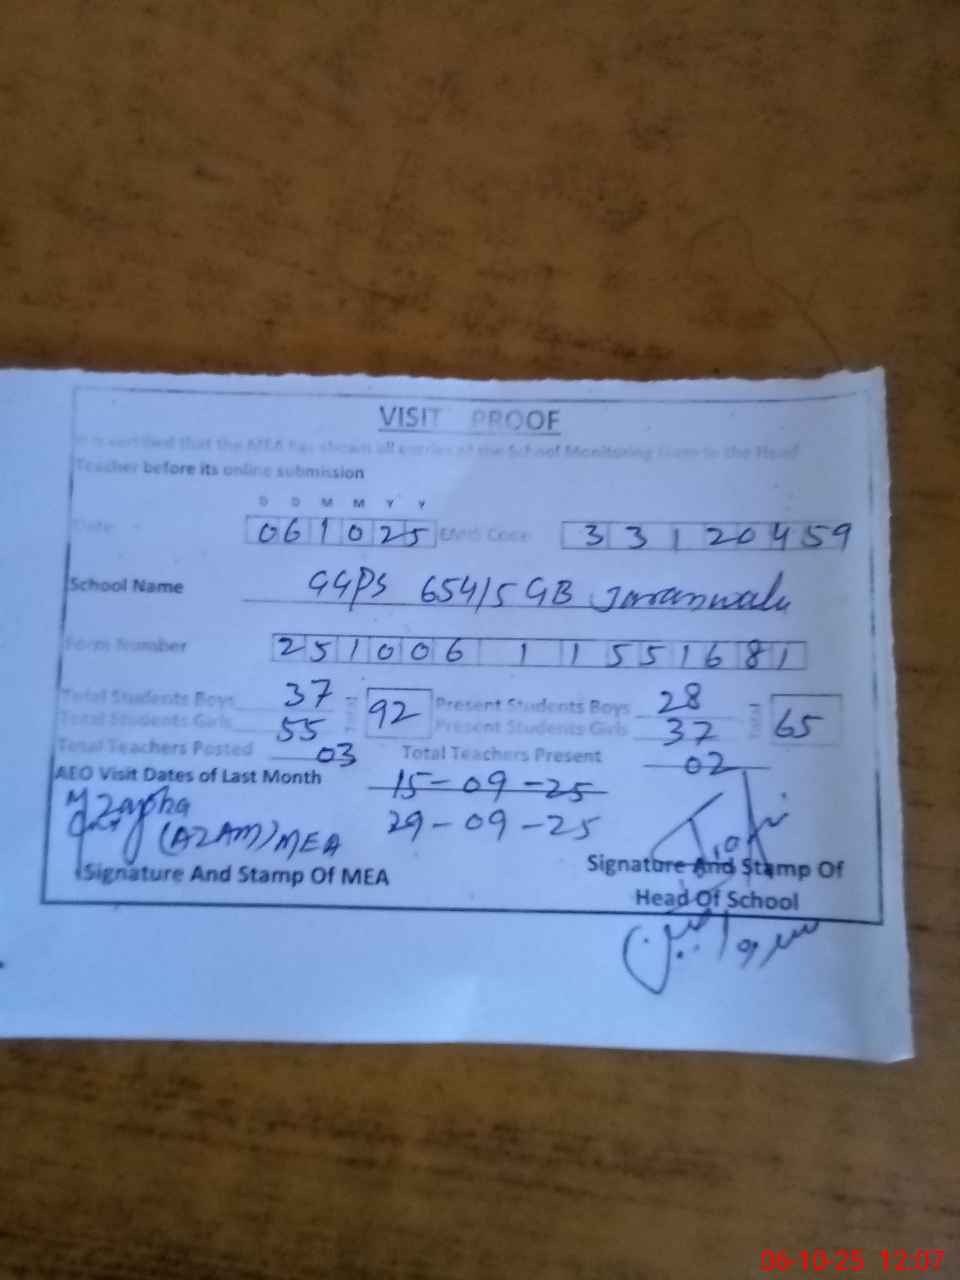 VISIT PROOF
It is certified that the MEA has shown all entries of the School Monitoring Form to the Head
Teacher before its online submission
D D M M Y Y
Date 061025 EMIS Code 33120459
School Name GGPS 654/5 GB Jaranwala
Form Number 251006 11551681
Total Students Boys 37 Total 92 Present Students Boys 28 Total 65
Total Students Girls 55 Present Students Girls 37
Total Teachers Posted 03 Total Teachers Present 02
AEO Visit Dates of Last Month 15-09-25
29-09-25
(AZAM) MEA
Signature And Stamp Of MEA
Signature And Stamp Of
Head Of School
06-10-25 12:07